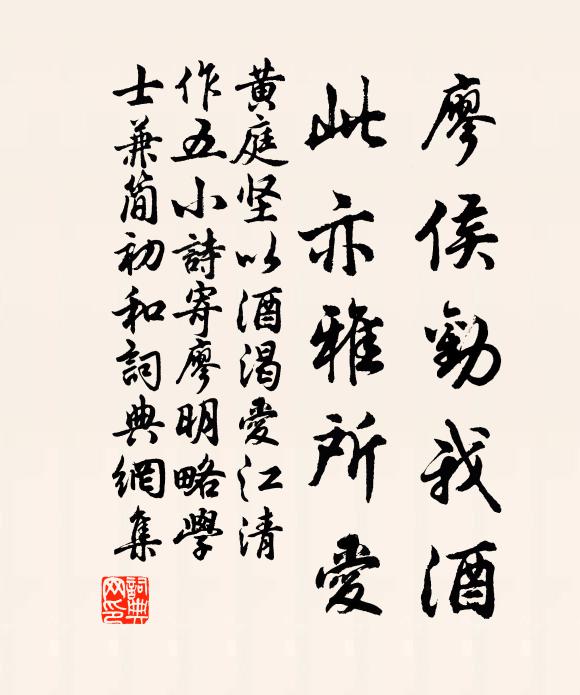 廖侯勸我酒
此亦雅所愛
黃庭坚以酒渴愛江清
作五小詩寄廖明略學
士兼簡初和詞典網集
詞典网印